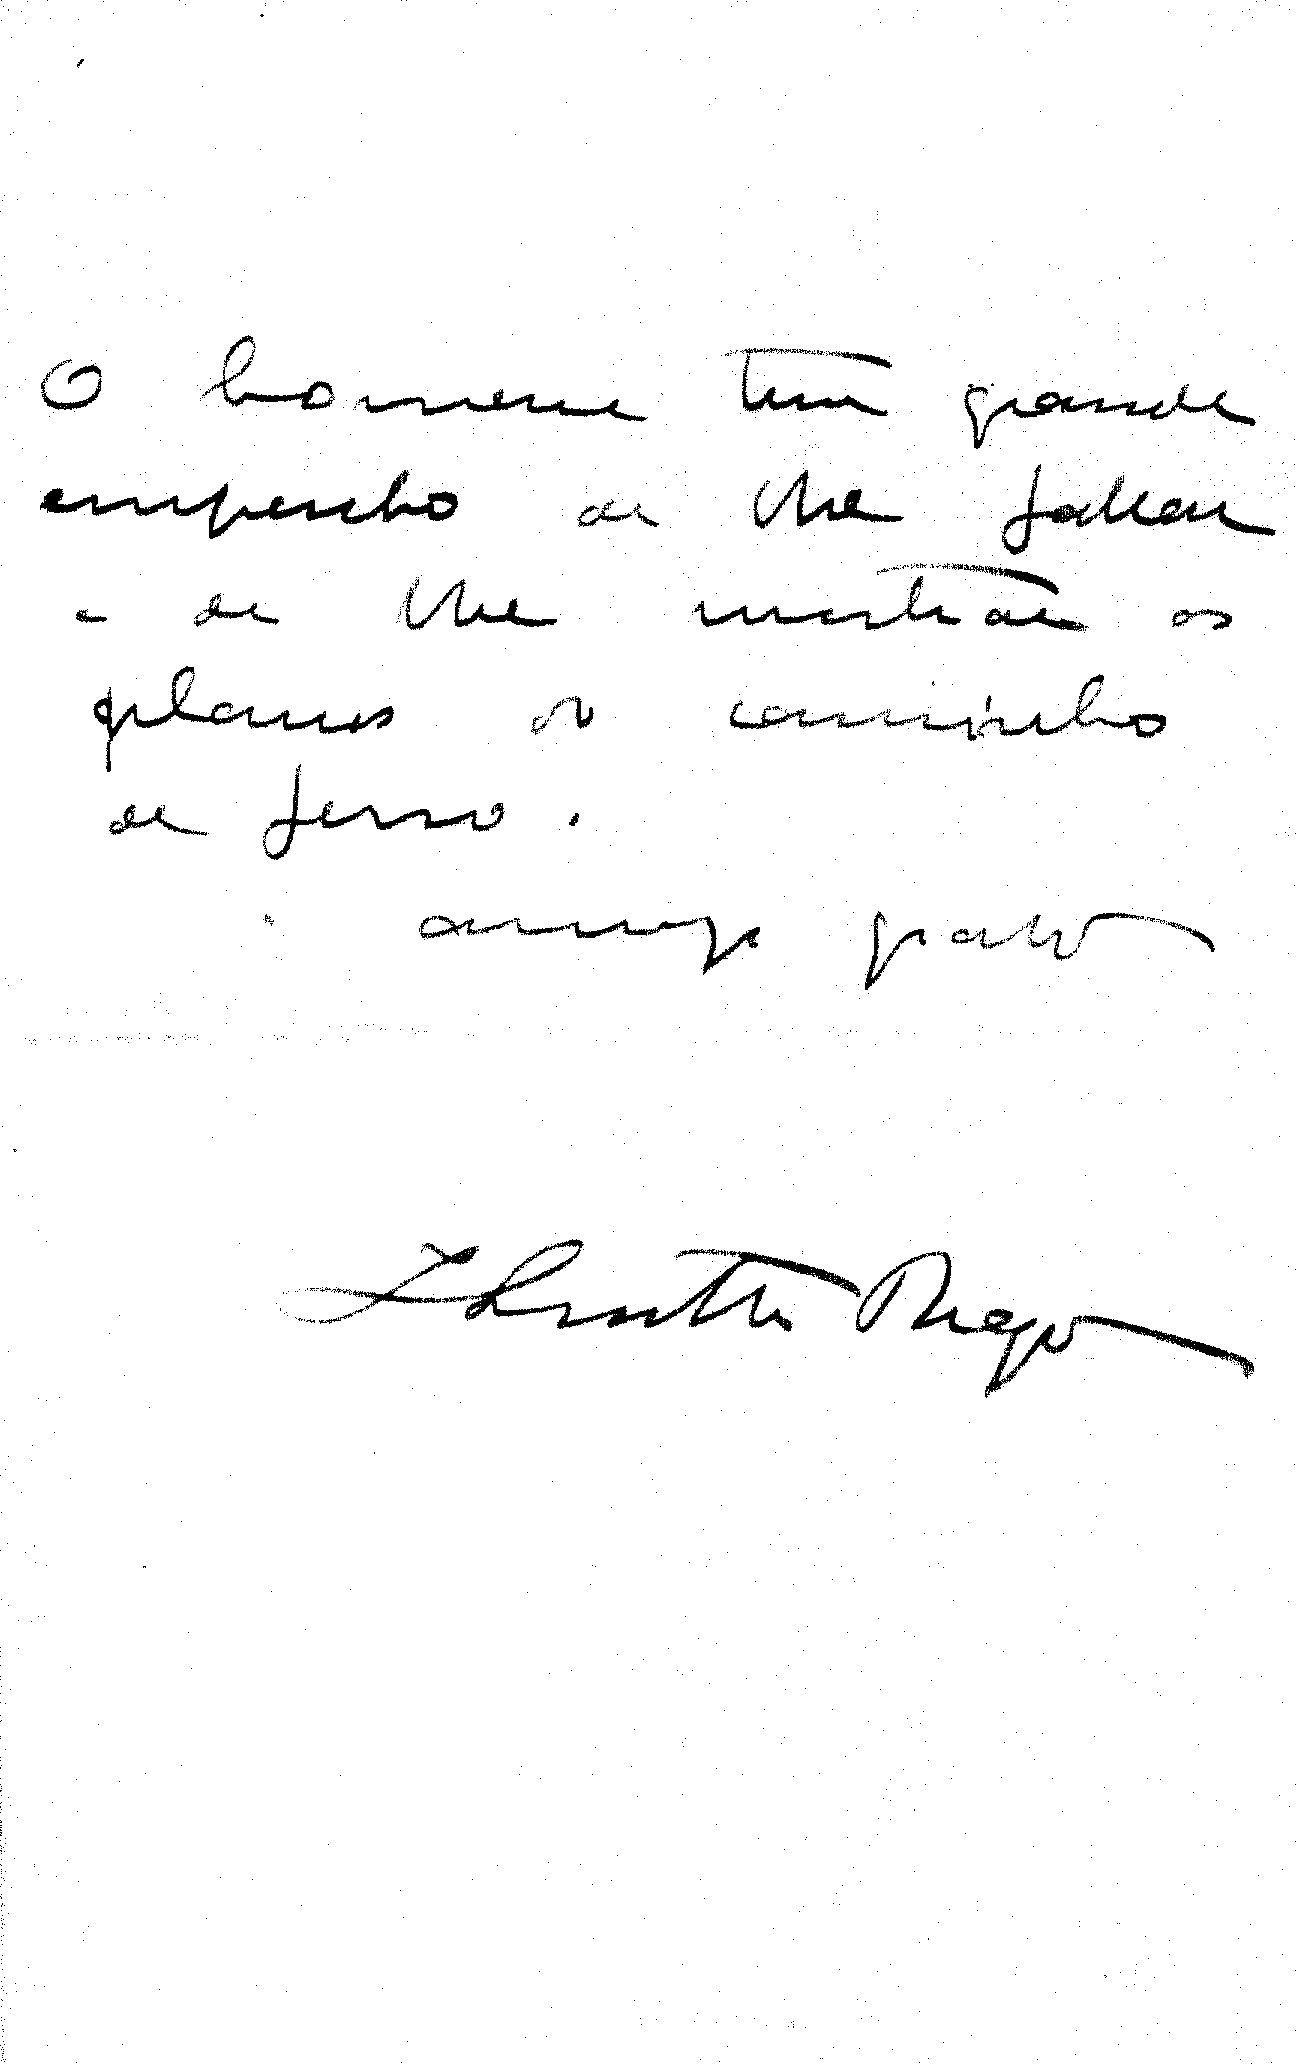 O homem tem grande
empenho de lhe fallar
e de lhe mostrar os
planos do caminho
de ferro.
amigo grato
Rego